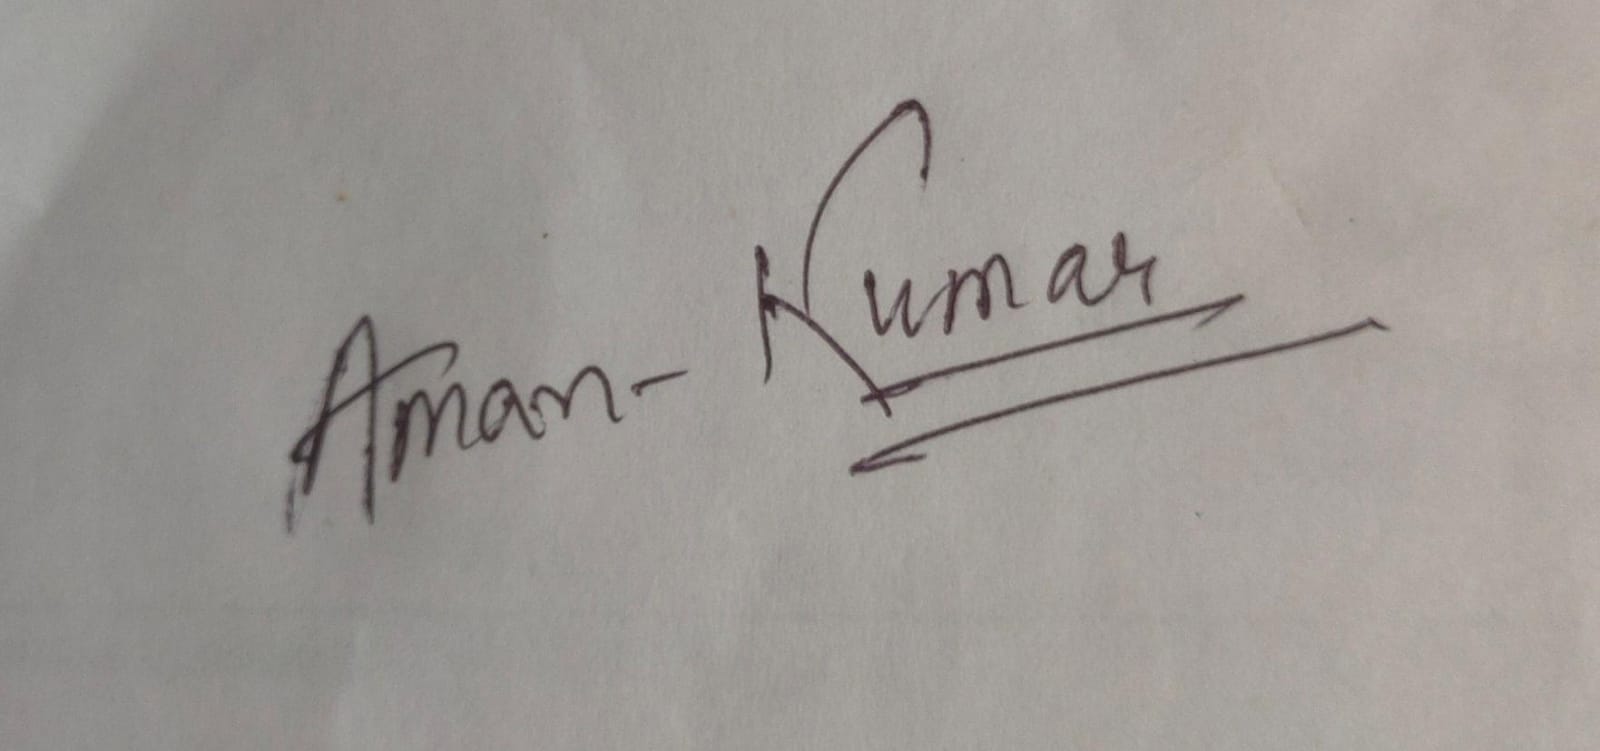 Aman- Kumar